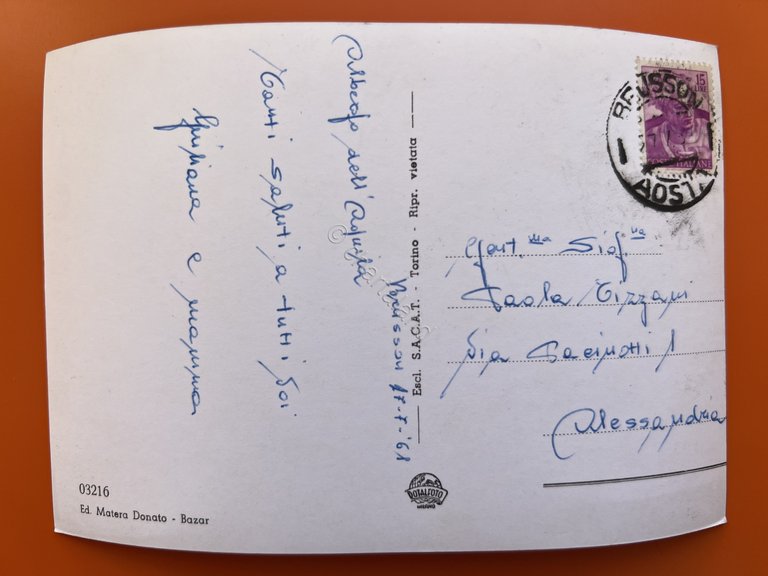 Albergo dell'Aquila
Brusson 17-7-'61
Tanti saluti a tutti voi
Giuliana e mamma
Gent.ma Sig.na
Paola Tizzani
Via Pacinotti 1
Alessandria
Escl. S.A.C.A.T. - Torino - Ripr. vietata
15
POSTE ITALIANE
BRUSSON
AOSTA
ROTALFOTO
MILANO
03216
Ed. Matera Donato - Bazar